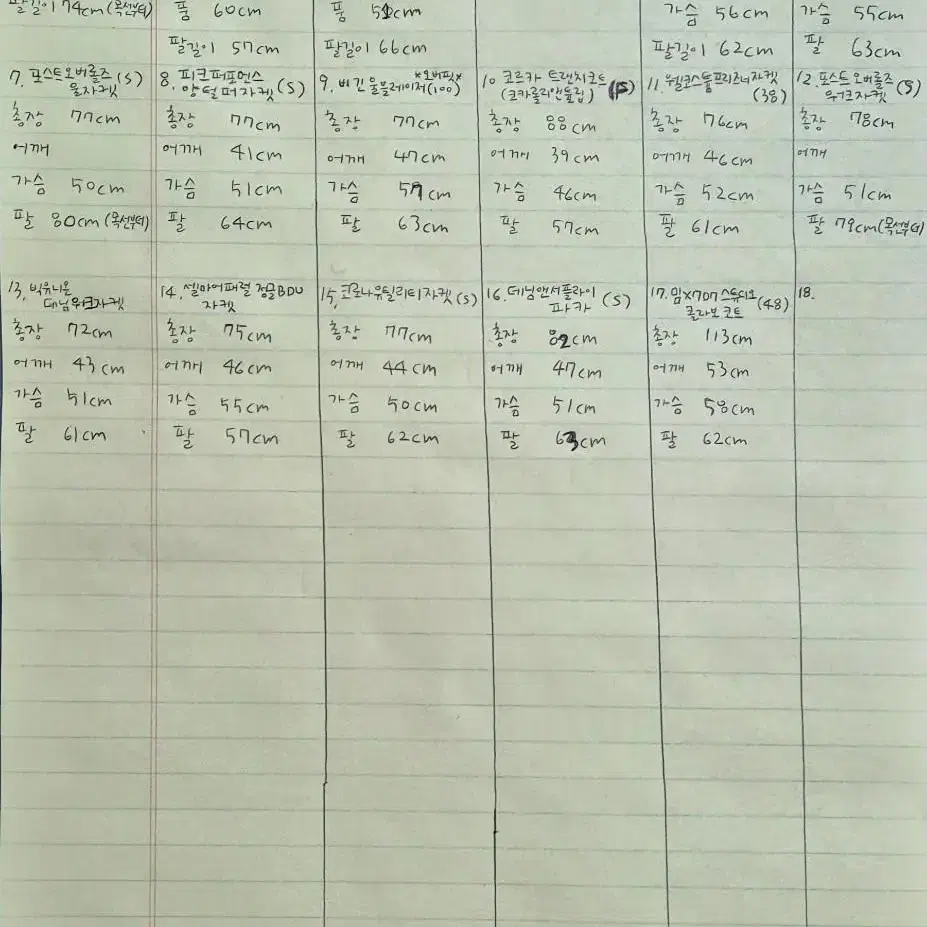 팔길이 74cm (목선부터)
품 60cm
팔길이 57cm
품 51cm
팔길이 66cm
가슴 56cm
팔길이 62cm
가슴 55cm
팔 63cm
7. 포스트오버롤즈 (S)
울자켓
총장 77cm
어깨
가슴 50cm
팔 80cm (목선부터)
8. 피크퍼포먼스
양털퍼자켓 (S)
총장 77cm
어깨 41cm
가슴 51cm
팔 64cm
9. 비긴울블레이저(100)
*오버핏*
총장 77cm
어깨 47cm
가슴 57cm
팔 63cm
10. 코르카 트렌치코트
(코카롤리앤튤립)
총장 88cm
어깨 39cm
가슴 46cm
팔 57cm
11. 웨어코스튬프리즈너자켓
(38)
총장 76cm
어깨 46cm
가슴 52cm
팔 61cm
12. 포스트 오버롤즈
워크자켓 (S)
총장 78cm
어깨
가슴 51cm
팔 79cm (목선부터)
13. 빅유니온
데님워크자켓
총장 72cm
어깨 43cm
가슴 51cm
팔 61cm
14. 셀마어패럴 정글BDU
자켓
총장 75cm
어깨 46cm
가슴 55cm
팔 57cm
15. 코로나유틸리티자켓 (S)
총장 77cm
어깨 44cm
가슴 50cm
팔 62cm
16. 데님앤서플라이
파카 (S)
총장 82cm
어깨 47cm
가슴 51cm
팔 63cm
17. 밈X707스튜디오
콜라보 코트 (48)
총장 113cm
어깨 53cm
가슴 58cm
팔 62cm
18.